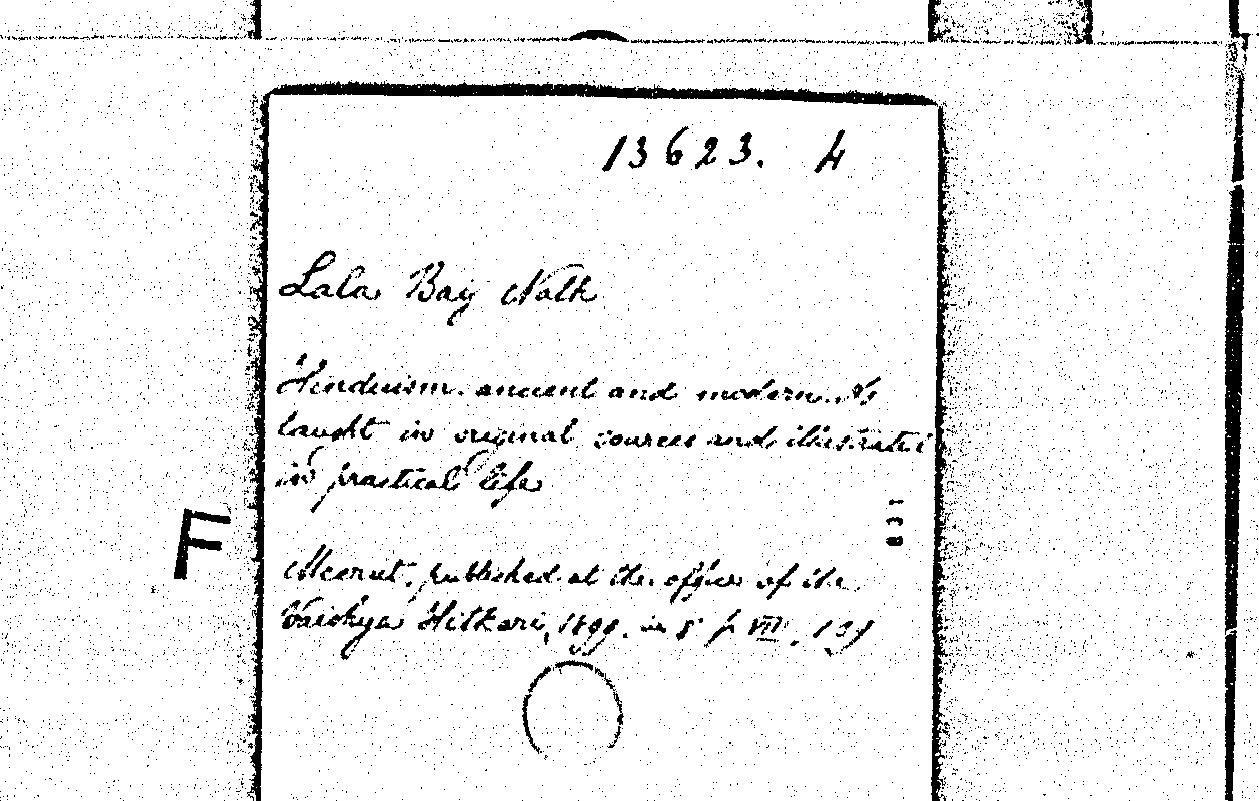 13623. 4
Lala Bay Nath
Hinduism. ancient and modern. As
taught in original sources and illustrated
in practical life
F
Meerut, published at the office of the
Vaishya Hitkari, 1899. in 8° p. VIII,